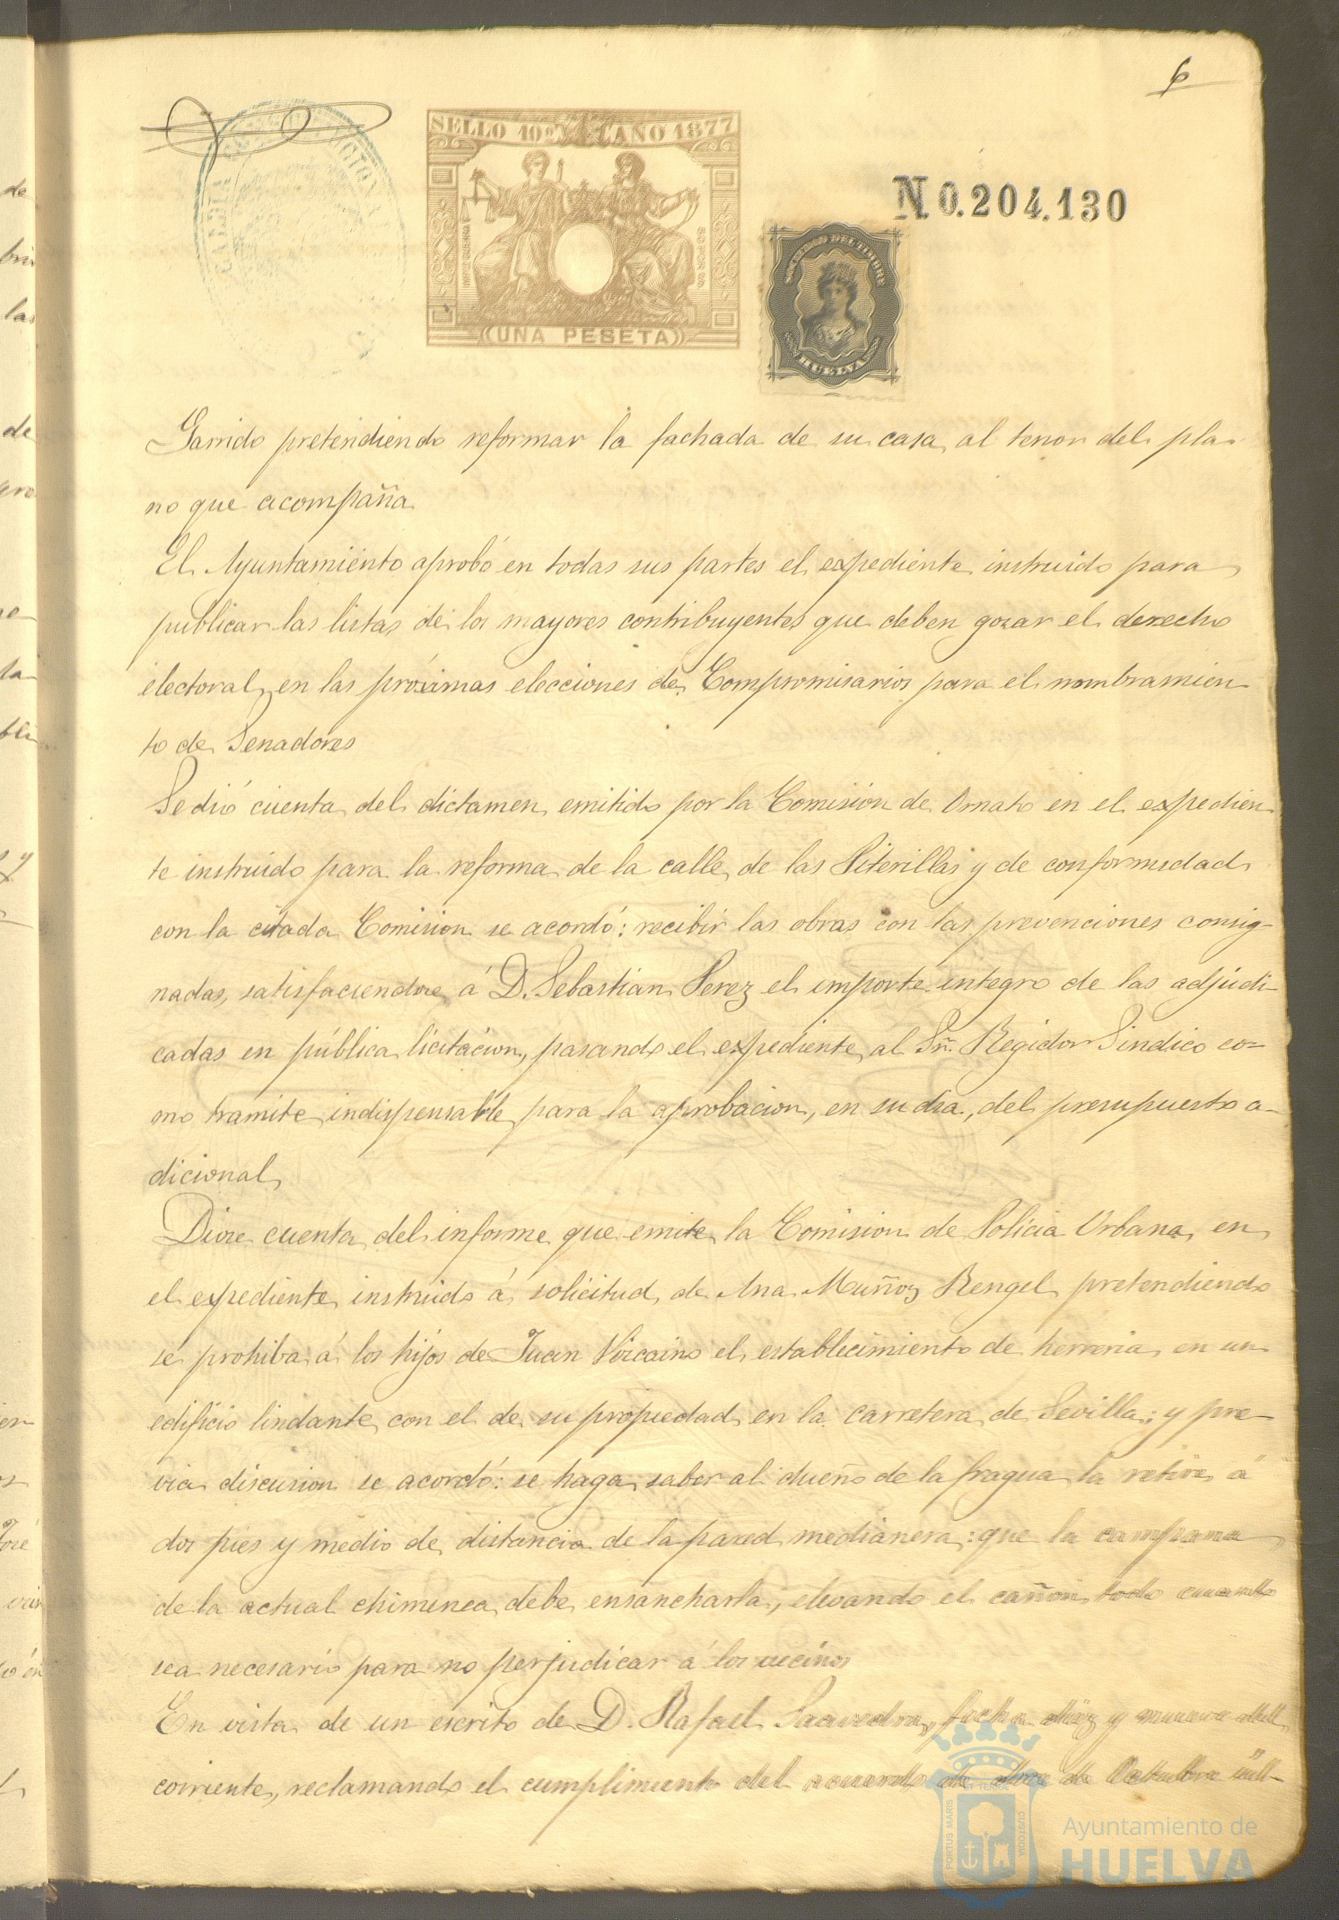 6
SELLO 10º AÑO 1877
UNA PESETA
N 0.204.130
SOCIEDAD DEL TIMBRE
HUELVA
Garrido pretendiendo reformar la fachada de su casa, al tenor del pla-
no que acompaña
El Ayuntamiento aprobó en todas sus partes el expediente instruido para
publicar las listas de los mayores contribuyentes que deben gozar el derecho
electoral, en las próximas elecciones de Compromisarios para el nombramien-
to de Senadores
Se dió cuenta del dictamen emitido por la Comision de Ornato en el expedien-
te instruido para la reforma de la calle de las Piterillas y de conformidad
con la citada Comision se acordó: recibir las obras con las prevenciones consig-
nadas, satisfaciendose á D. Sebastian Perez el importe integro de las adjudi-
cadas en pública licitacion, pasando el expediente al Sr. Regidor Sindico co-
mo tramite indispensable para la aprobacion, en su dia, del presupuesto a-
dicional
Diose cuenta del informe que emite la Comision de Policia Urbana, en
el expediente instruido á solicitud de Ana Muñoz Rengel pretendiendo
se prohiba á los hijos de Juan Vizcaino el establecimiento de herreria en un
edificio lindante con el de su propiedad en la carretera de Sevilla; y pre-
via discusion se acordó: se haga saber al dueño de la fragua la retire á
dos pies y medio de distancia de la pared medianera: que la campana
de la actual chimenea debe ensancharla, elevando el cañon todo cuanto
sea necesario para no perjudicar á los vecinos
En vista de un escrito de D. Rafael Saavedra, fecha diez y nueve del
corriente, reclamando el cumplimiento del acuerdo de doce de Octubre últ-
PORTUS MARIS
CUSTODIA
Ayuntamiento de
HUELVA